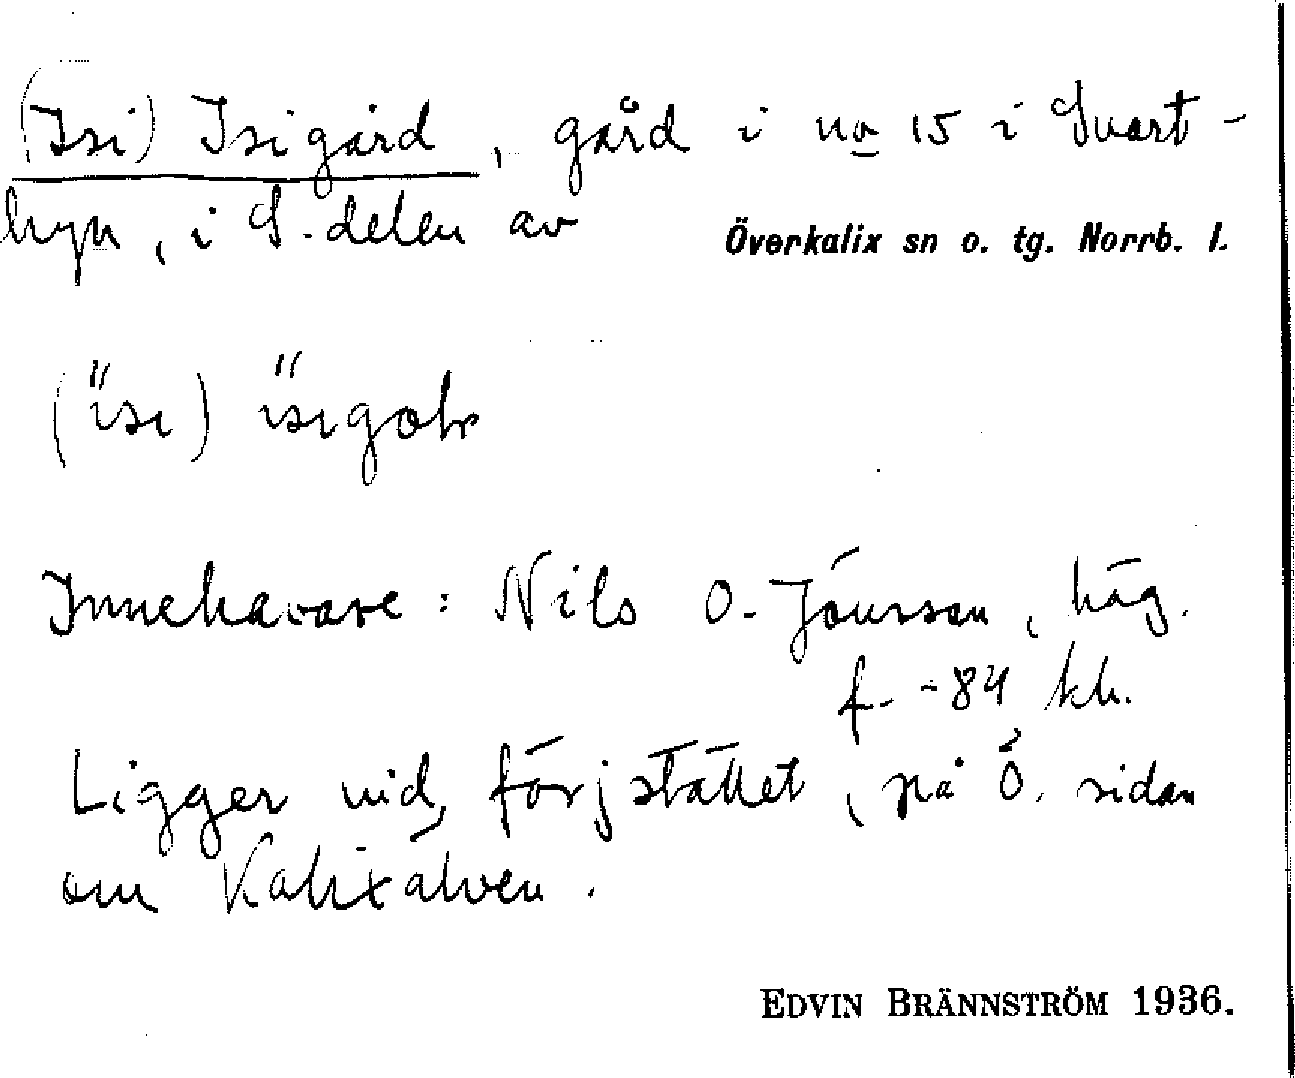 (Isi) Isigård, gård i no 15 i Svart-
byn, i S. delen av Överkalix sn o. tg. Norrb. l.
(ïsı) ïsıgoḷr
Innehavare: Nils O. Jönsson, häg.
f. -84 kh.
Ligger vid färjstället, på Ö. sidan
om Kalixälven.
EDVIN BRÄNNSTRÖM 1936.